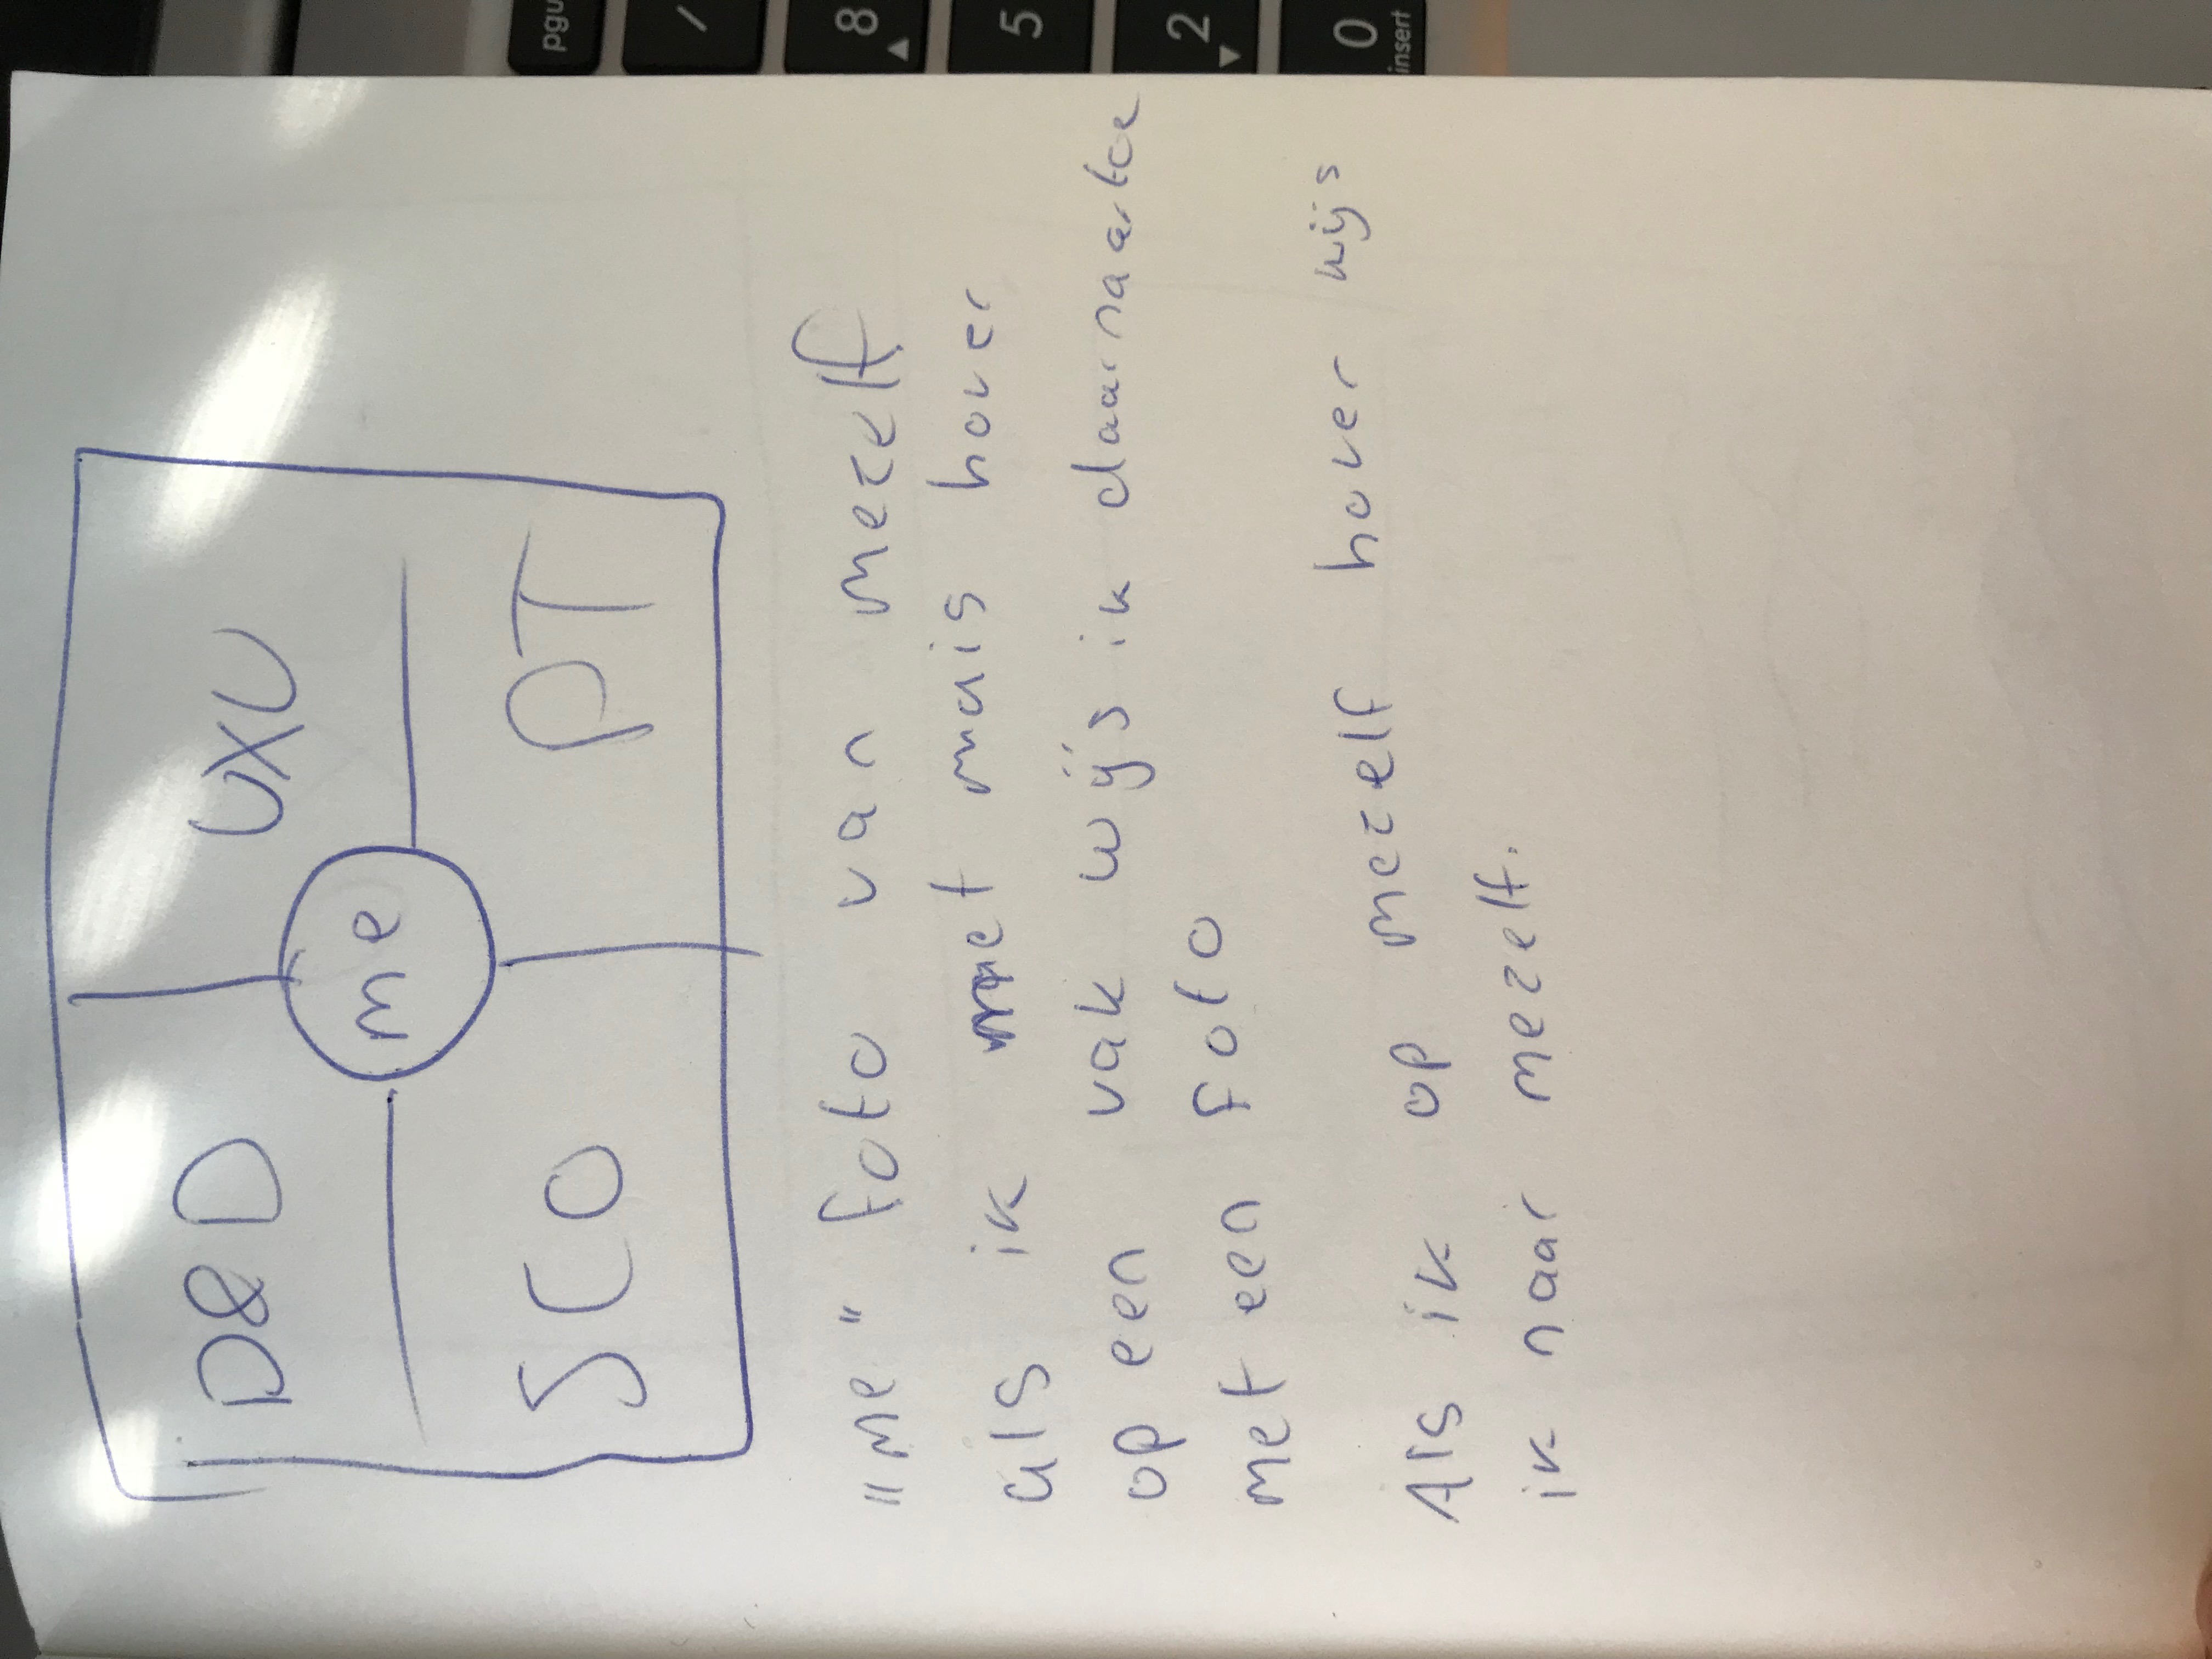 D&D UXU
me
SCO PT
"me" foto van mezelf
als ik met muis hover
op een vak wijs ik daarnaartoe
met een foto
Als ik op mezelf hover wijs
ik naar mezelf.
pgu
/
8
5
2
0
insert